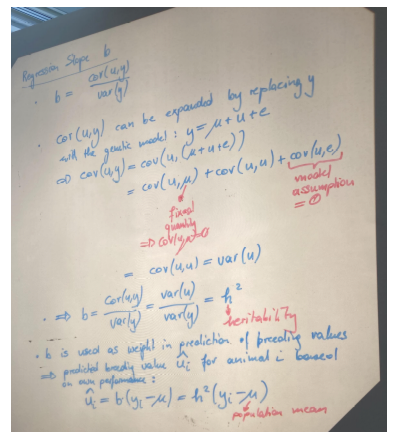 Regression Slope b
· b = cov(u,y) / var(y)
· cov(u,y) can be expanded by replacing y
with the genetic model: y = μ + u + e
=> cov(u,y) = cov(u, (μ+u+e))
= cov(u,μ) + cov(u,u) + cov(u,e)
fixed
quantity
=> cov(u,μ)=0
model
assumption
= 0
= cov(u,u) = var(u)
· => b = cov(u,y) / var(y) = var(u) / var(y) = h²
heritability
· b is used as weight in prediction of breeding values
=> predicted breeding value û_i for animal i based
on own performance:
û_i = b(y_i - μ) = h²(y_i - μ)
population mean